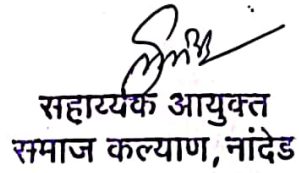 सहाय्यक आयुक्त
समाज कल्याण, नांदेड